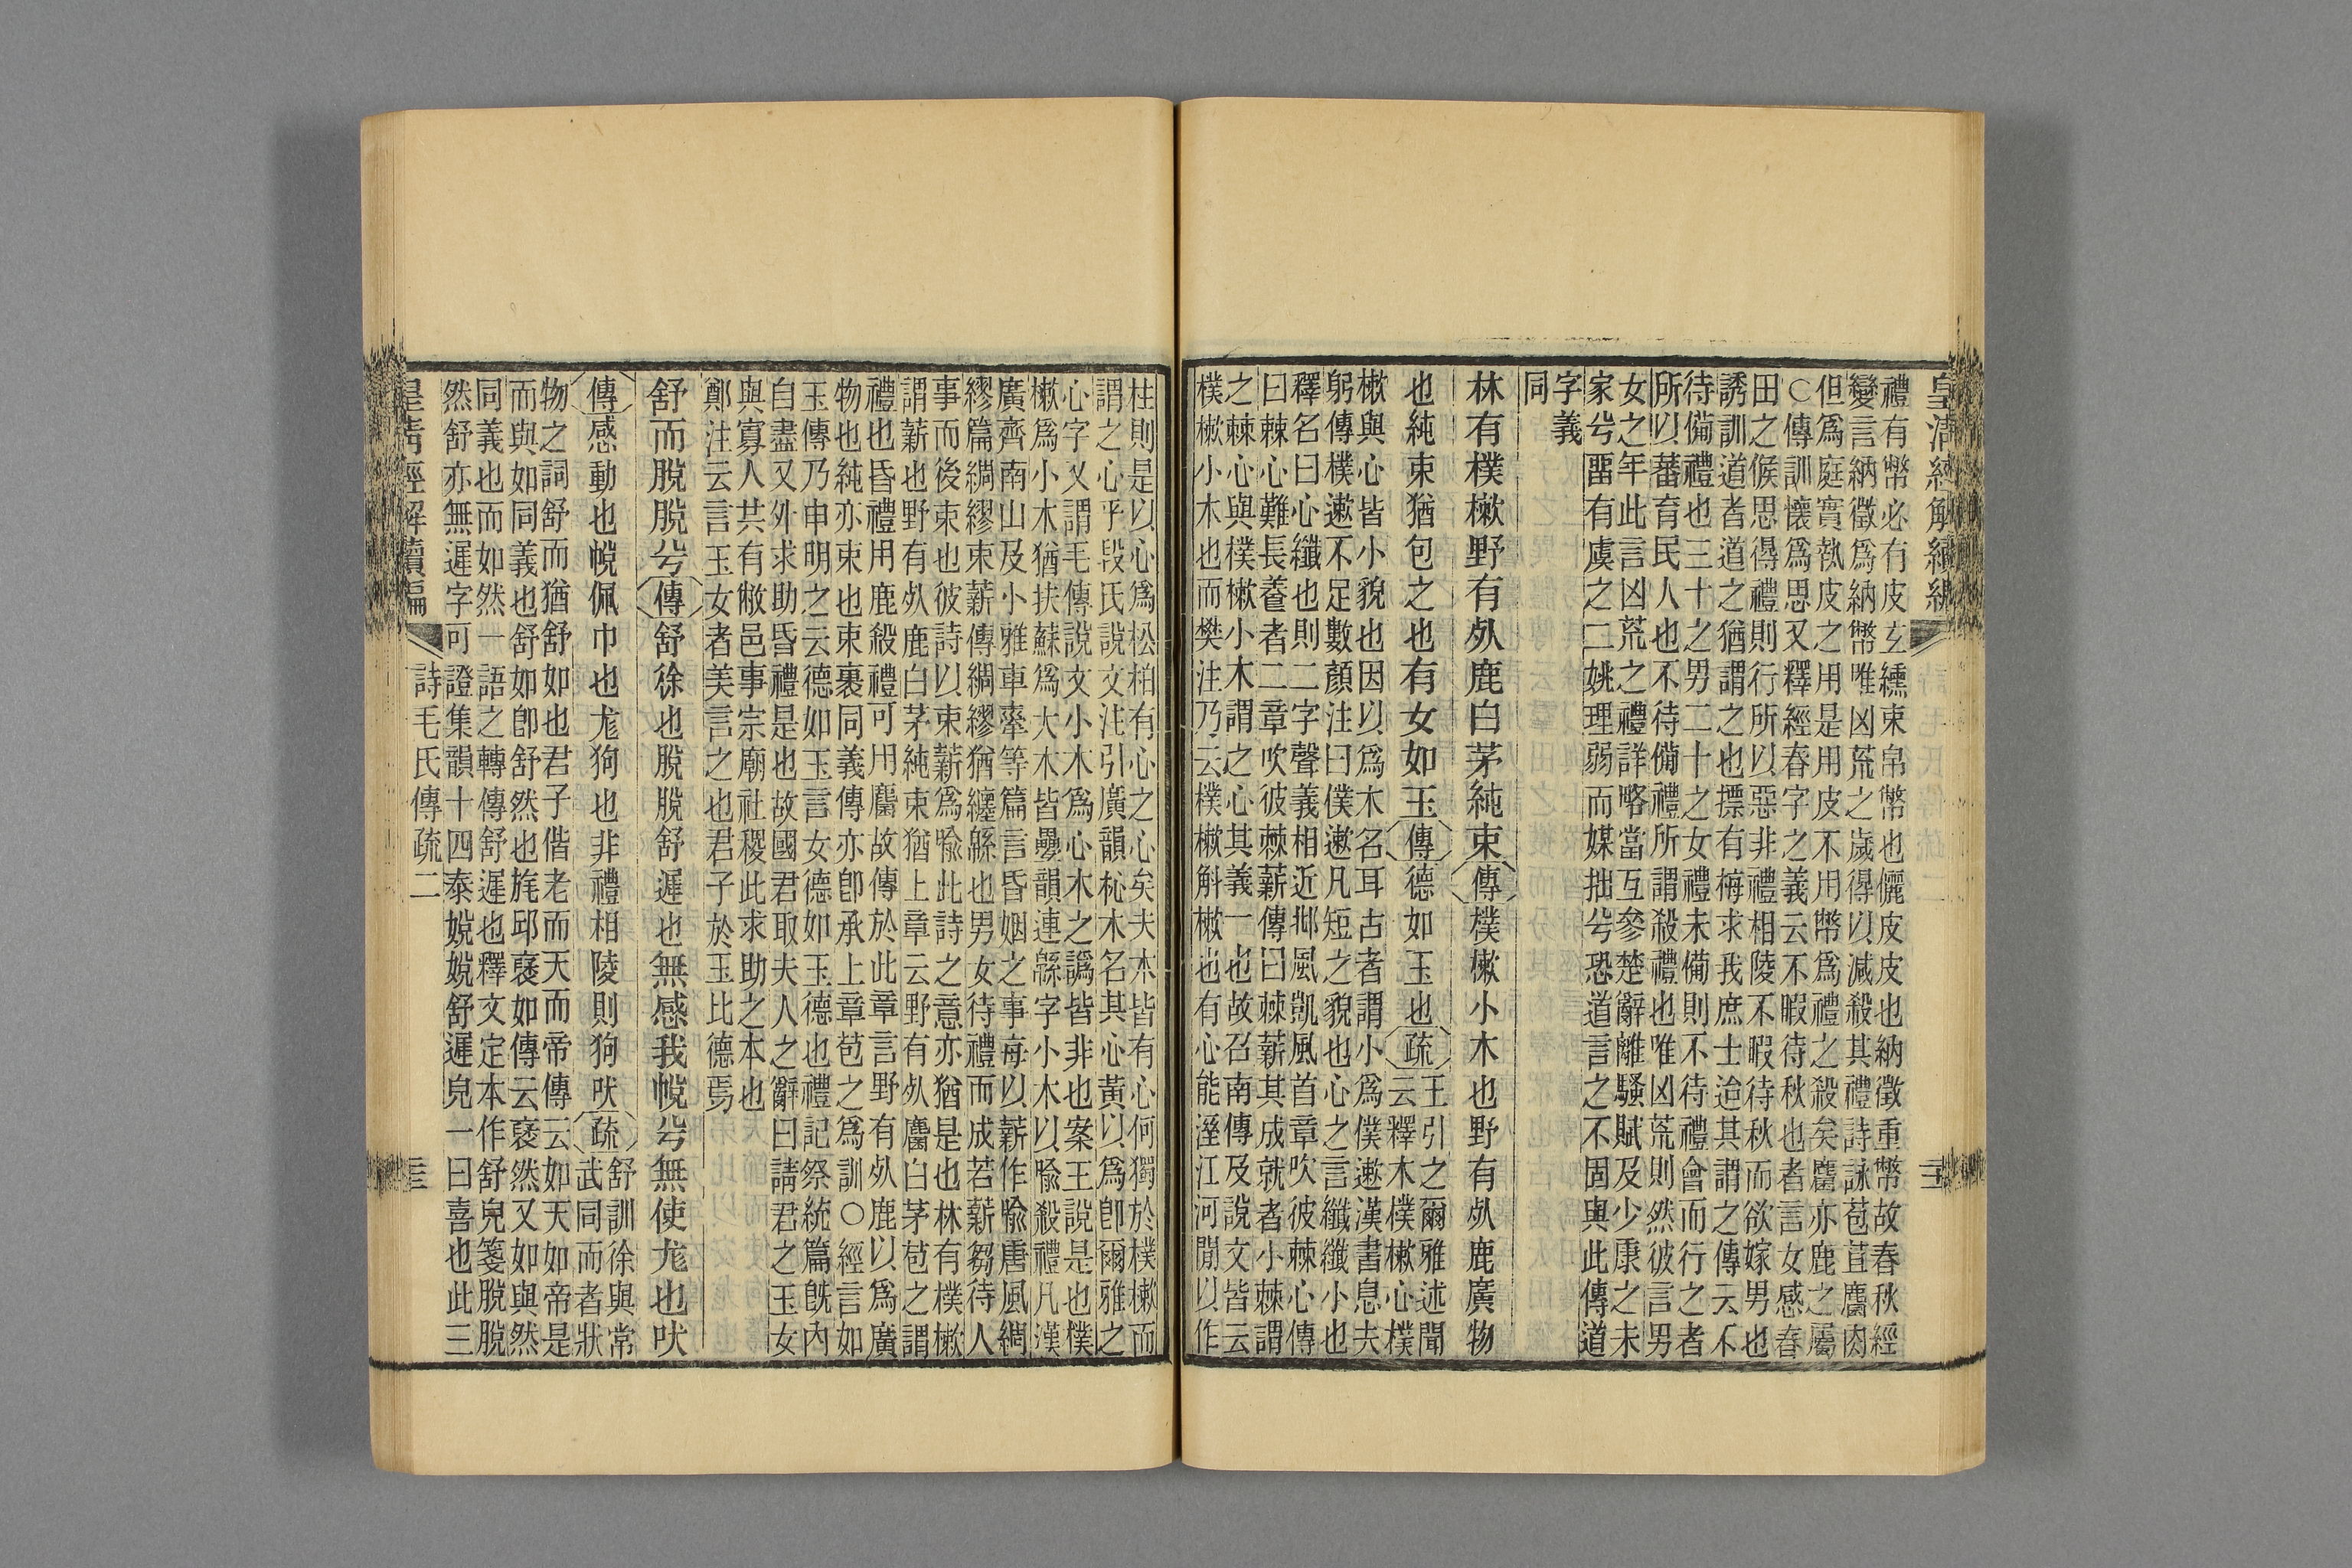 禮有幣必有皮玄纁束帛幣也儷皮皮也納徵重幣故春秋經
變言納徵爲納幣唯凶荒之歲得以減殺其禮詩詠苞苴麕肉
但爲庭實執皮之用是用皮不用幣爲禮之殺矣麕亦鹿之屬
○傳訓懷爲思又釋經春字之義云不暇待秋也者言女感春
田之候思得禮則行所以惡非禮相陵不暇待秋而欲嫁男也
誘訓道者道之猶謂之也摽有梅求我庶士迨其謂之傳云不
待備禮也三十之男二十之女禮未備則不待禮會而行之者
所以蕃育民人也不待備禮所謂殺禮也唯凶荒則然彼言男
女之年此言凶荒之禮詳略當互參楚辭離騷賦及少康之未
家兮畱有虞之二姚理弱而媒拙兮恐道言之不固與此傳道
字義
同
林有樸樕野有死鹿白茅純束傳樸樕小木也野有死鹿廣物
也純束猶包之也有女如玉傳德如玉也疏
王引之爾雅述聞
云釋木樸樕心樸
樕與心皆小貌也因以爲木名耳古者謂小爲僕遬漢書息夫
躬傳樸遬不足數顏注曰僕遬凡短之貌也心之言纖纖小也
釋名曰心纖也則二字聲義相近邶風凱風首章吹彼棘心傳
曰棘心難長養者二章吹彼棘薪傳曰棘薪其成就者小棘謂
之棘心與樸樕小木謂之心其義一也故召南傳及說文皆云
樸樕小木也而樊注乃云樸樕斛樕也有心能溼江河閒以作
柱則是以心爲松柏有心之心矣夫木皆有心何獨於樸樕而
謂之心乎段氏說文注引廣韻杺木名其心黃以爲卽爾雅之
心字又謂毛傳說文小木爲心木之譌皆非也案王說是也樸
樕爲小木猶扶蘇爲大木皆疊韻連緜字小木以喻殺禮凡漢
廣齊南山及小雅車舝等篇言昏姻之事每以薪作喻唐風綢
繆篇綢繆束薪傳綢繆猶纏緜也男女待禮而成若薪芻待人
事而後束也彼詩以束薪爲喻此詩之意亦猶是也林有樸樕
謂薪也野有死鹿白茅純束猶上章云野有死麕白茅苞之謂
禮也昏禮用鹿殺禮可用麕故傳於此章言野有死鹿以爲廣
物也純亦束也束裹同義傳亦卽承上章苞之爲訓○經言如
玉傳乃申明之云德如玉言女德如玉德也禮記祭統篇旣內
自盡又外求助昏禮是也故國君取夫人之辭曰請君之玉女
與寡人共有敝邑事宗廟社稷此求助之本也
鄭注云言玉女者美言之也君子於玉比德焉
舒而脫脫兮傳舒徐也脫脫舒遲也無感我帨兮無使尨也吠
傳感動也帨佩巾也尨狗也非禮相陵則狗吠疏
舒訓徐與常
武同而者狀
物之詞舒而猶舒如也君子偕老而天而帝傳云如天如帝是
而與如同義也舒如卽舒然也旄邱褎如傳云褎然又如與然
同義也而如然一語之轉傳舒遲也釋文定本作舒皃箋脫脫
然舒亦無遲字可證集韻十四泰娧娧舒遲皃一曰喜也此三
皇清經解續編
詩毛氏傳疏二